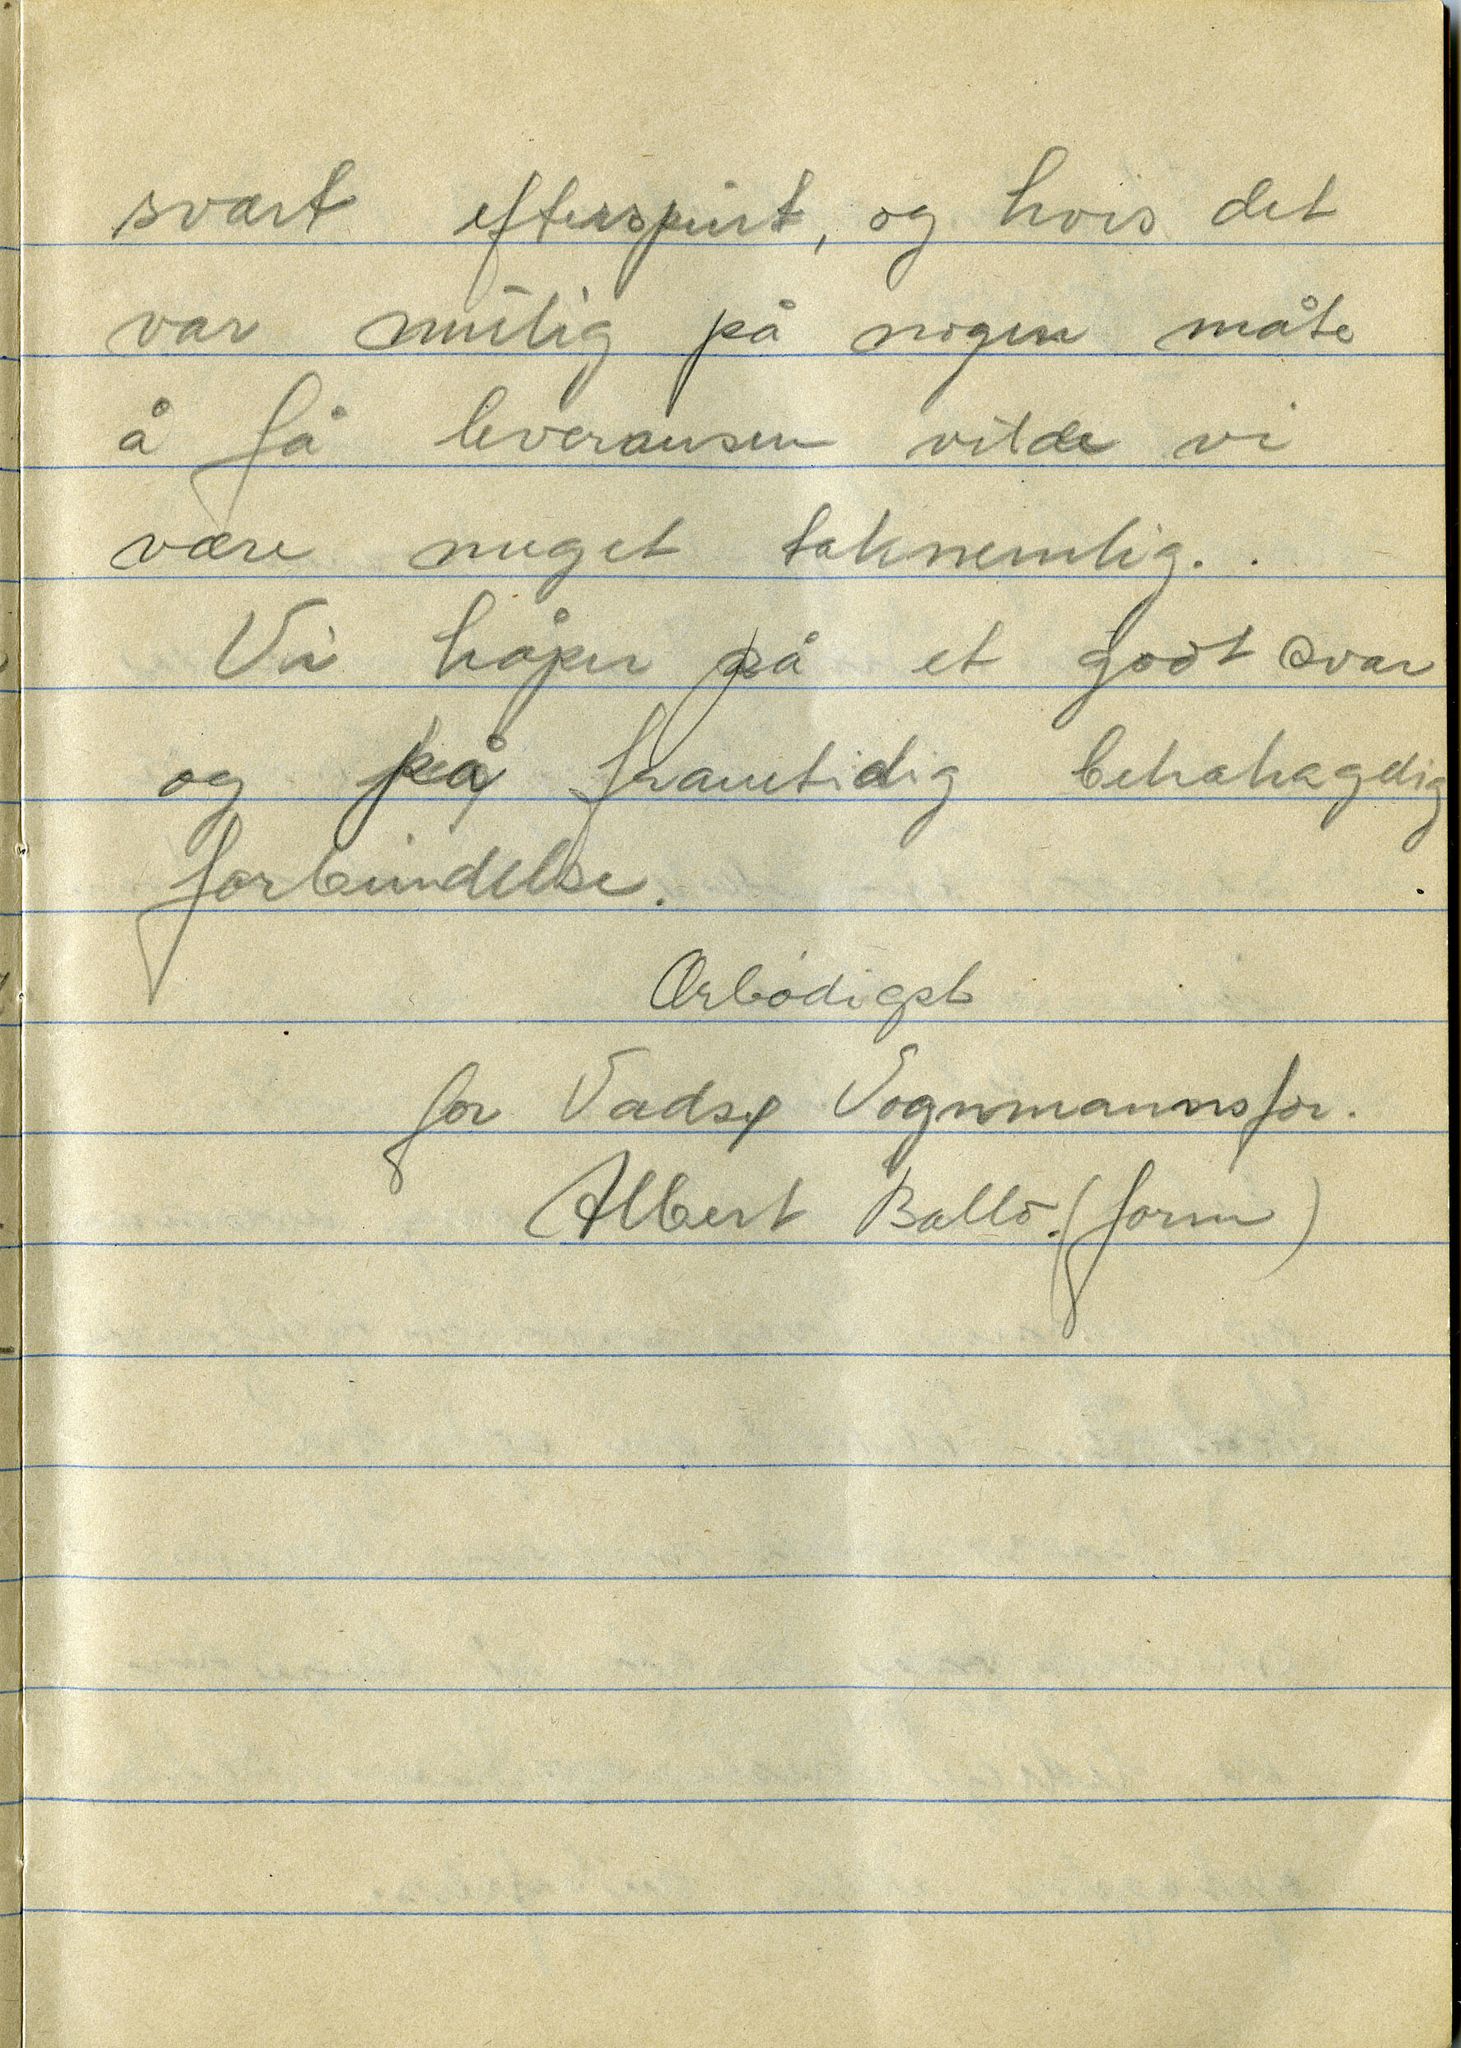 svært efterspurt, og hvis det
var mulig på nogen måte
å få leveransen vilde vi
være meget taknemlig. .
Vi håper på et godt svar
og på framtidig behahagdig
forbindelse.
Ørbødigst
for Vadsø Vognmannsfor.
Albert Ballo. (form)